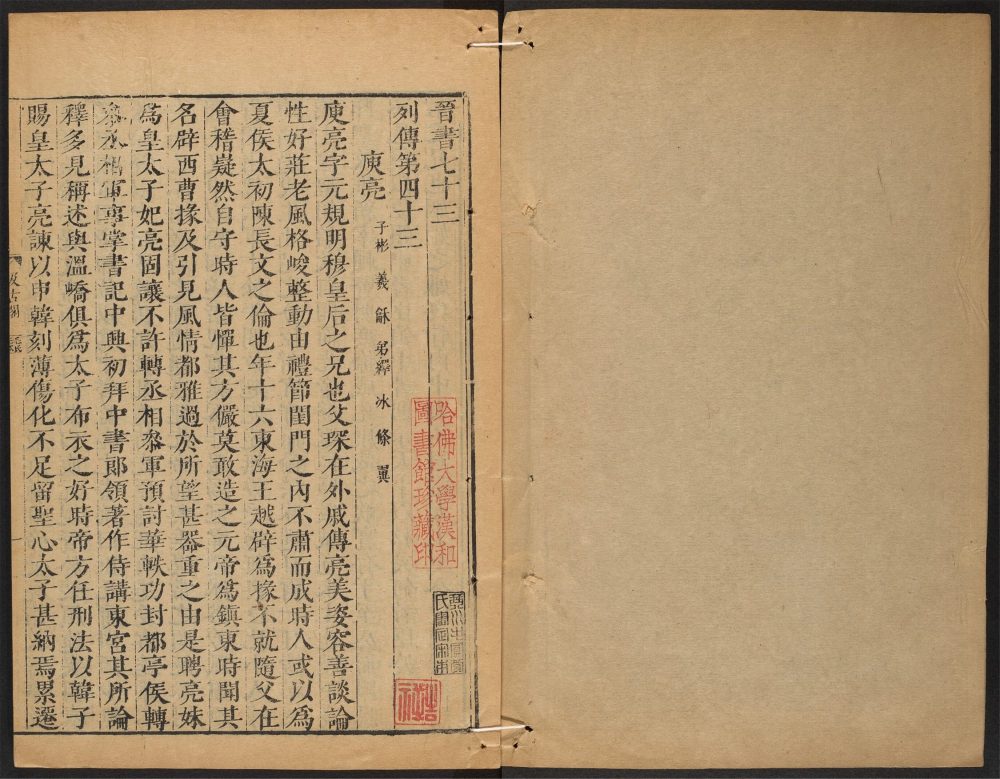 晉書七十三
列傳第四十三
庾亮 子彬 羲 龢 弟繹 冰 條 翼
庾亮字元規明穆皇后之兄也父琛在外戚傳亮美姿容善談論
性好莊老風格峻整動由禮節閨門之內不肅而成時人或以爲
夏侯太初陳長文之倫也年十六東海王越辟爲掾不就隨父在
會稽嶷然自守時人皆憚其方儼莫敢造之元帝爲鎮東時聞其
名辟西曹掾及引見風情都雅過於所望甚器重之由是聘亮妹
爲皇太子妃亮固讓不許轉丞相參軍預討華軼功封都亭侯轉
參丞相軍事掌書記中興初拜中書郎領著作侍講東宮其所論
釋多見稱述與溫嶠俱爲太子布衣之好時帝方任刑法以韓子
賜皇太子亮諫以申韓刻薄傷化不足留聖心太子甚納焉累遷
哈佛大學漢和
圖書館珍藏印